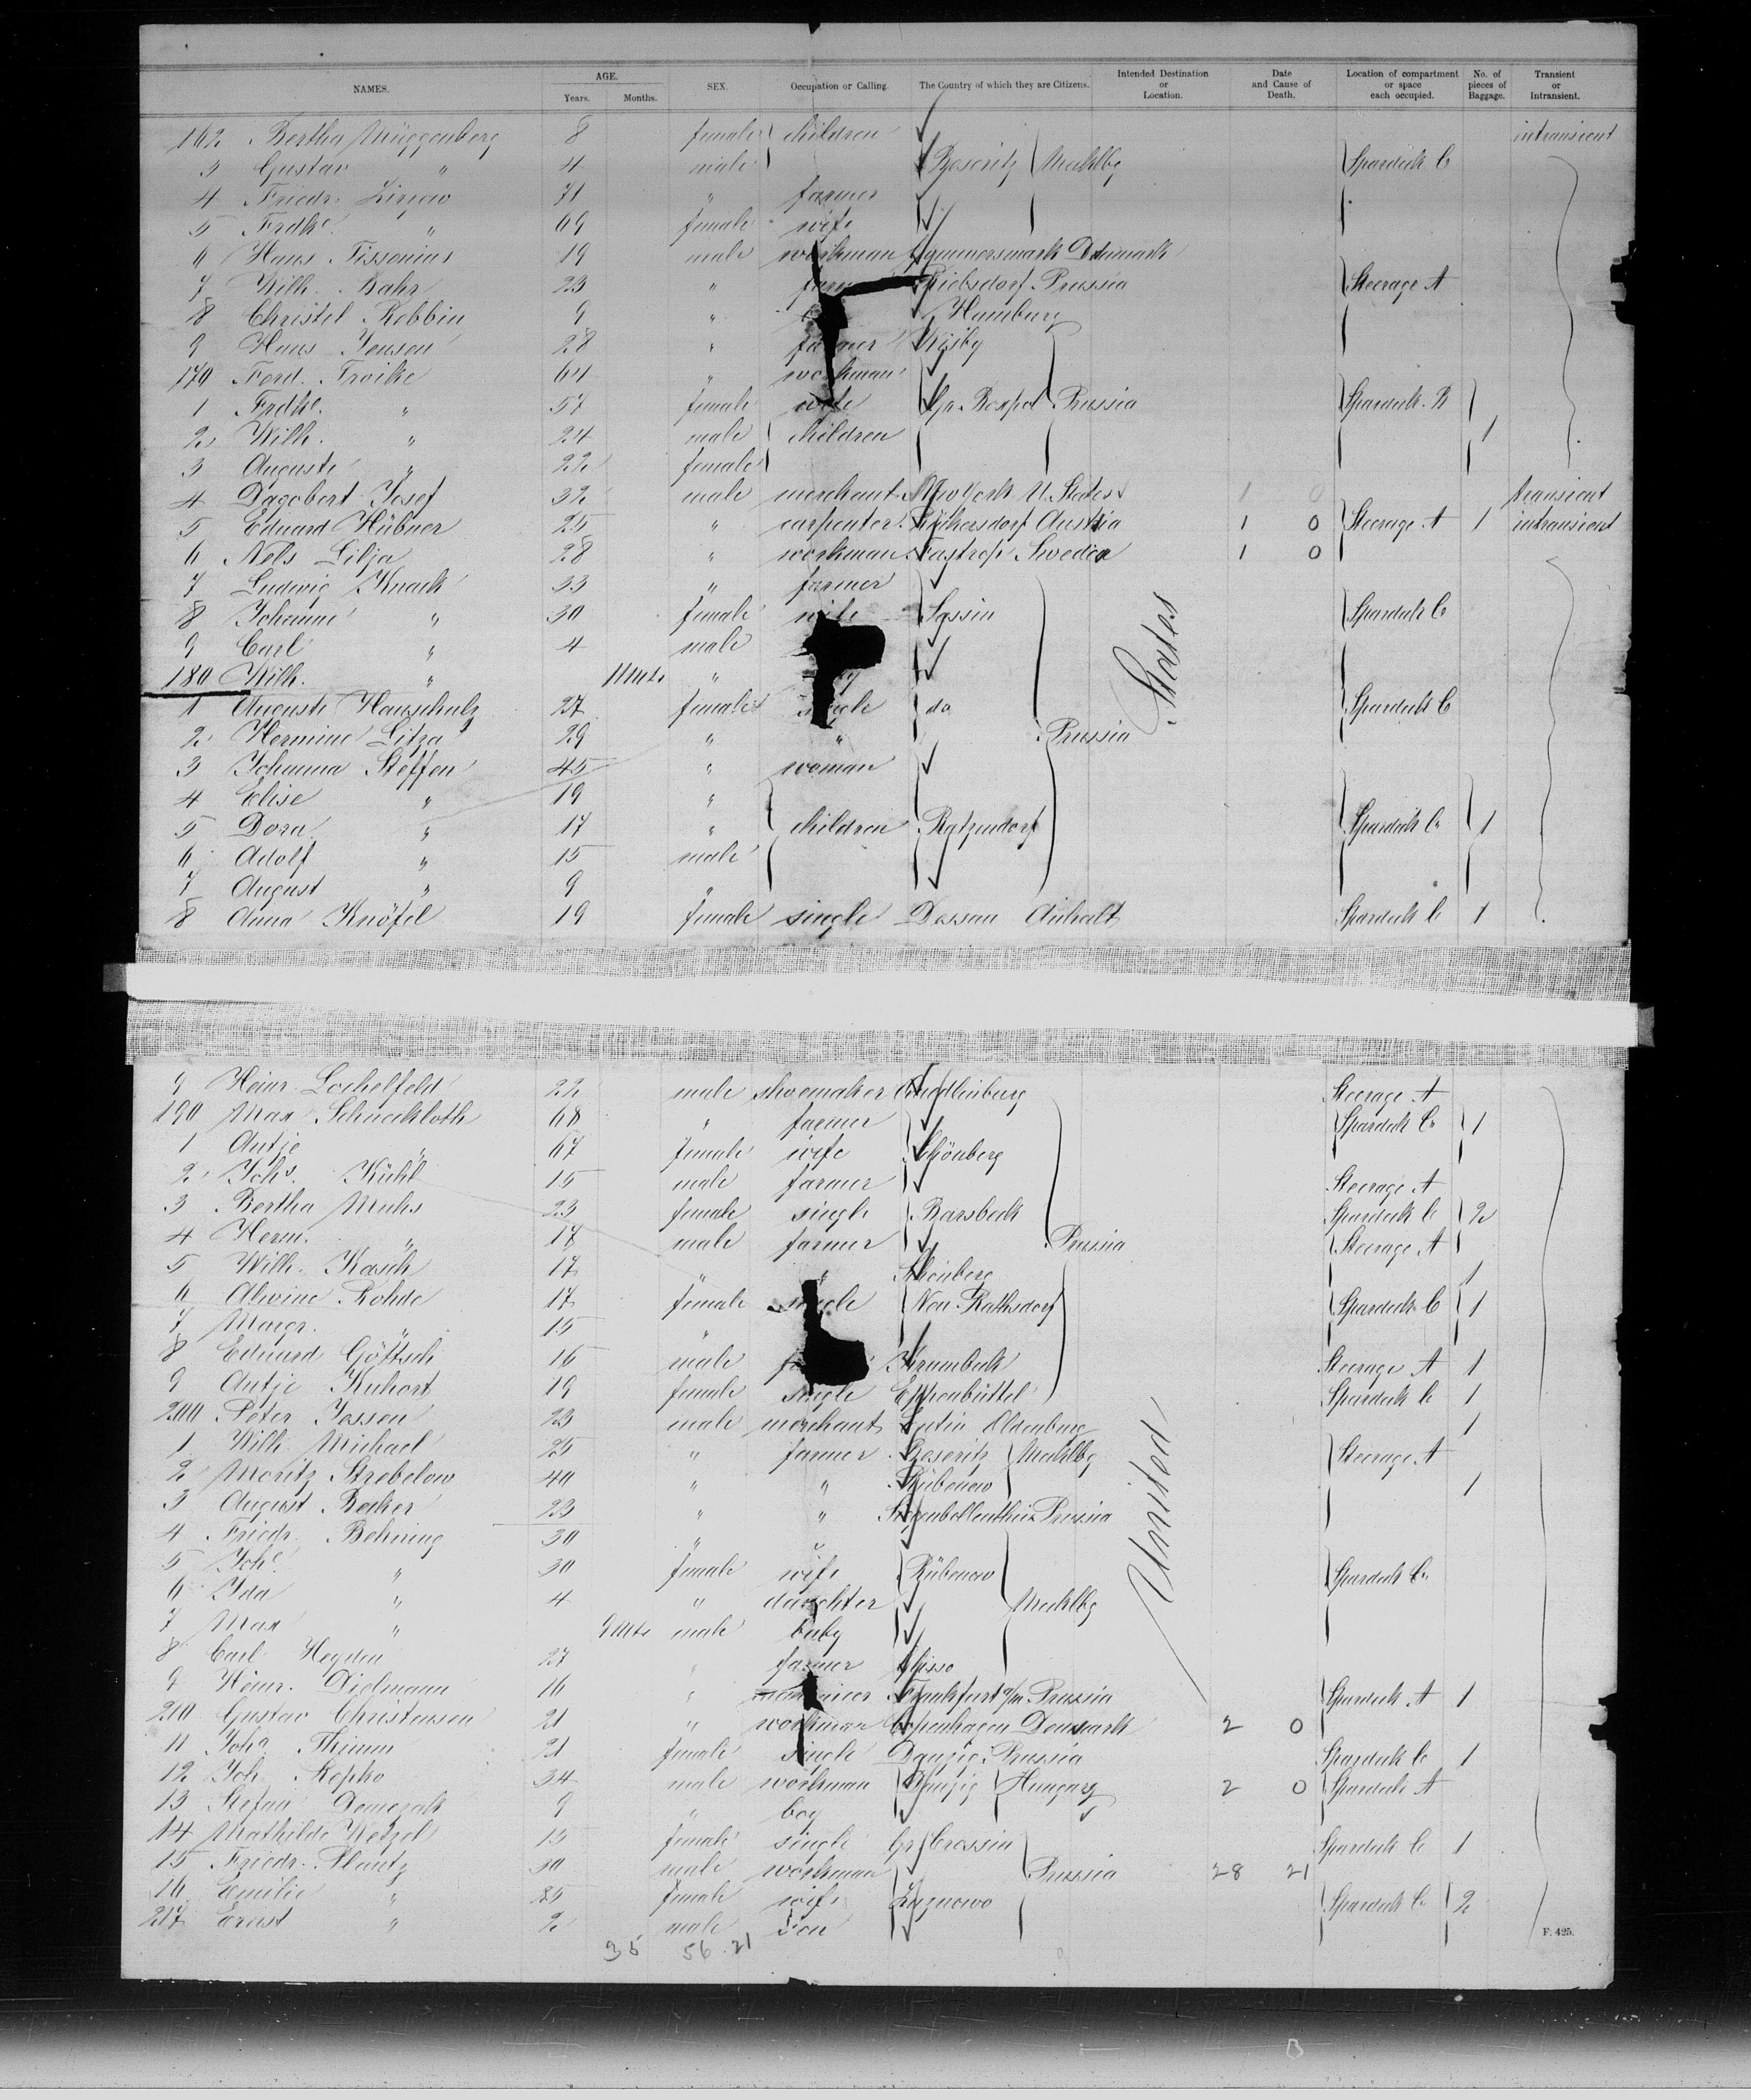 NAMES. AGE. Years. Months. SEX. Occupation or Calling. The Country of which they are Citizens. Intended Destination or Location. Date and Cause of Death. Location of compartment or space each occupied. No. of pieces of Baggage. Transient or Intransient.
162 Bertha Müggenberg 8 female children intransient
3 Gustav " 4 male Roseritz Mecklbg Spardeck C
4 Friedr. 71 " farmer
5 Frdke " 69 female wife
6 Hans Tissenius 19 male workman Denmark
7 Wilh. Bahr 23 " Riebsdorf Prussia Steerage A
8 Christel Robbin 9 " Hamburg
9 Hans Jensen 28 " farmer Wisby
170 Ferd. Troike 64 " workman
1 Frdke. " 57 female wife Gr. Prussia Spardeck B
2 Wilh. " 24 male children 1
3 Auguste " 22 female
4 Dagobert Josef 32 male merchant New York U. States 1 0 transient
5 Eduard Hübner 25 " carpenter Austria 1 0 Steerage A 1 intransient
6 Nels Lilja 28 " workman Tastrop Sweden 1 0
7 Ludwig Knack 33 " farmer
8 Johanne " 30 female wife Sassin Spardeck C
9 Carl " 4 male
180 Wilh. " 11 Mts "
1 Auguste Hauschulz 27 female single do Spardeck C
2 Hermine Litza 29 " " Prussia
3 Johanna Steffen 45 " woman
4 Elise " 19 "
5 Dora " 17 " children Ratzendorf Spardeck C 1
6 Adolf " 15 male
7 August " 9 "
8 Anna Knöfel 19 female single Dessau Anhalt Spardeck C 1
States
9 Heinr. Lochelfeld 22 male shoemaker Quedlinburg Steerage A
190 Max Schneekloth 68 " farmer Spardeck C 1
1 Antje " 67 female wife Schönberg
2 Johs. Kühl 15 male farmer Steerage A
3 Bertha Muhs 23 female single Barsbeck Spardeck C 2
4 Herm. " 17 male farmer Prussia Steerage A
5 Wilh. Kasch 17 " " Schönberg 1
6 Alwine Rohde 17 female single Neu-Rathsdorf Spardeck C 1
7 Margr. " 15 "
8 Eduard Göttsch 16 male Krumbeck Steerage A 1
9 Antje Kuhort 19 female single Eppenbüttel Spardeck C 1
200 Peter Jessen 23 male merchant Eutin Oldenburg 1
1 Wilh. Michael 25 " farmer Roseritz Mecklbg Steerage A
2 Moritz Strebelow 40 " " Rübenow 1
3 August Becker 23 " " Prussia
4 Friedr. Behning 30 " "
5 Johe " 30 female wife Rübenow Spardeck C
6 Ida " 4 " daughter Mecklbg
7 Max " 9 Mts male baby
8 Carl Heyden 27 " farmer
9 Heinr. Dielmann 16 " Frankfurt a/m Prussia Spardeck A 1
210 Gustav Christensen 21 " workman Copenhagen Denmark 2 0
11 Joha Thimm 21 female single Danzig Prussia Spardeck C 1
12 Joh. Repho 34 male workman Hungary 2 0 Spardeck A
13 Stefan Demczak 9 " boy
14 Mathilde Wetzel 15 female single Gr. Crossin Spardeck C 1
15 Friedr. Plautz 30 male workman Prussia 28 21
16 Emilie " 25 female wife Luznowo Spardeck C 2
217 Ernst " 2 male son
United
35 56 .21
F. 425.